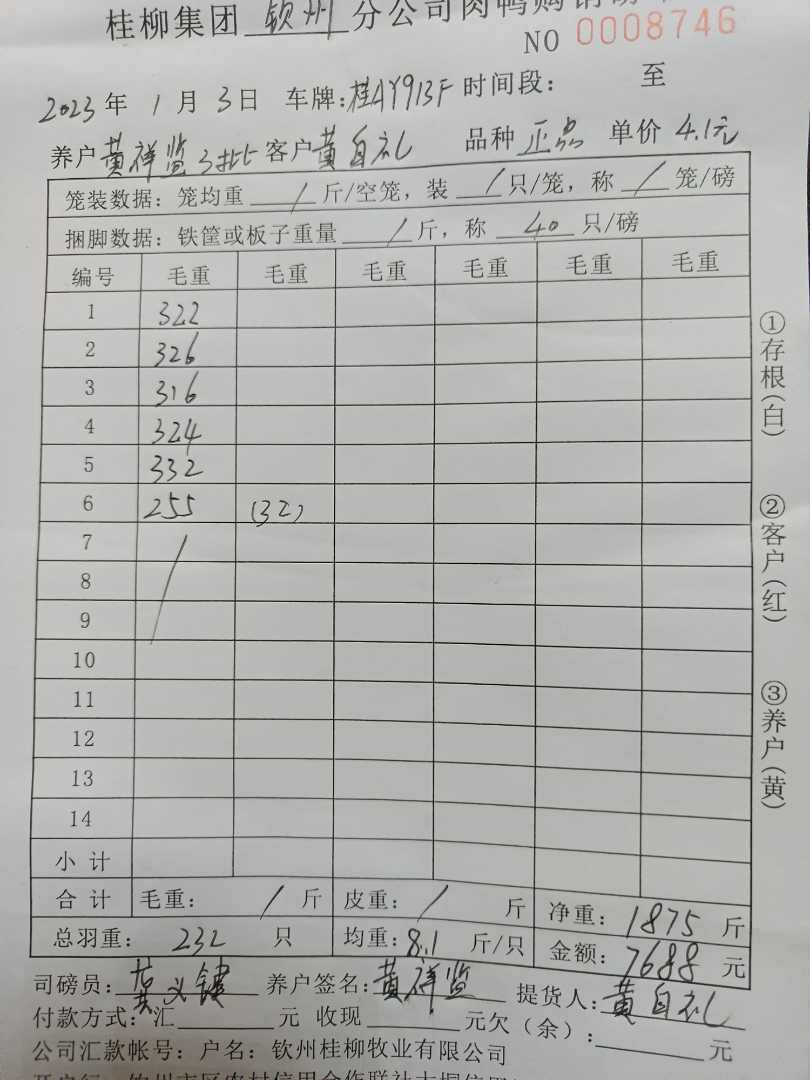 桂柳集团 钦州 分公司肉鸭购销
NO 0008746
2023 年 1 月 3 日 车牌：桂AY913F 时间段： 至
养户 黄祥监 3批 客户 黄自礼 品种 正品 单价 4.1元
笼装数据：笼均重 / 斤/空笼，装 / 只/笼，称 / 笼/磅
捆脚数据：铁筐或板子重量 / 斤，称 40 只/磅
编号 毛重 毛重 毛重 毛重 毛重 毛重
1 322
2 326
3 316
4 324
5 332
6 255 (32)
7 /
8
9
10
11
12
13
14
小 计
合 计 毛重： / 斤 皮重： / 斤 净重： 1875 斤
总羽重： 232 只 均重： 8.1 斤/只 金额： 7688 元
司磅员： 黄义键 养户签名： 黄祥监 提货人： 黄自礼
付款方式：汇 元 收现 元欠（余）： 元
公司汇款帐号：户名：钦州桂柳牧业有限公司
①存根（白）
②客户（红）
③养户（黄）